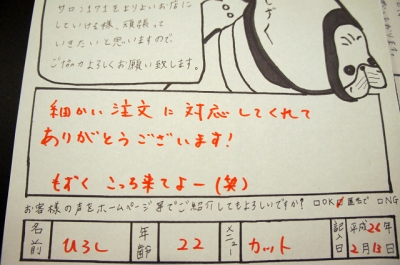 サロンコウヤをよりよいお店に
していける様、頑張って
いきたいと思いますので、
ご協力よろしくお願い致します。
もずく
細かい注文に対応してくれて
ありがとうございます!
もずく こっち来てよー(笑)
お客様の声をホームページ等でご紹介してもよろしいですか? □OK ☑匿名で □NG
名前 ひろし 年齢 22 メニュー カット 記入日 平成26年
2月13日